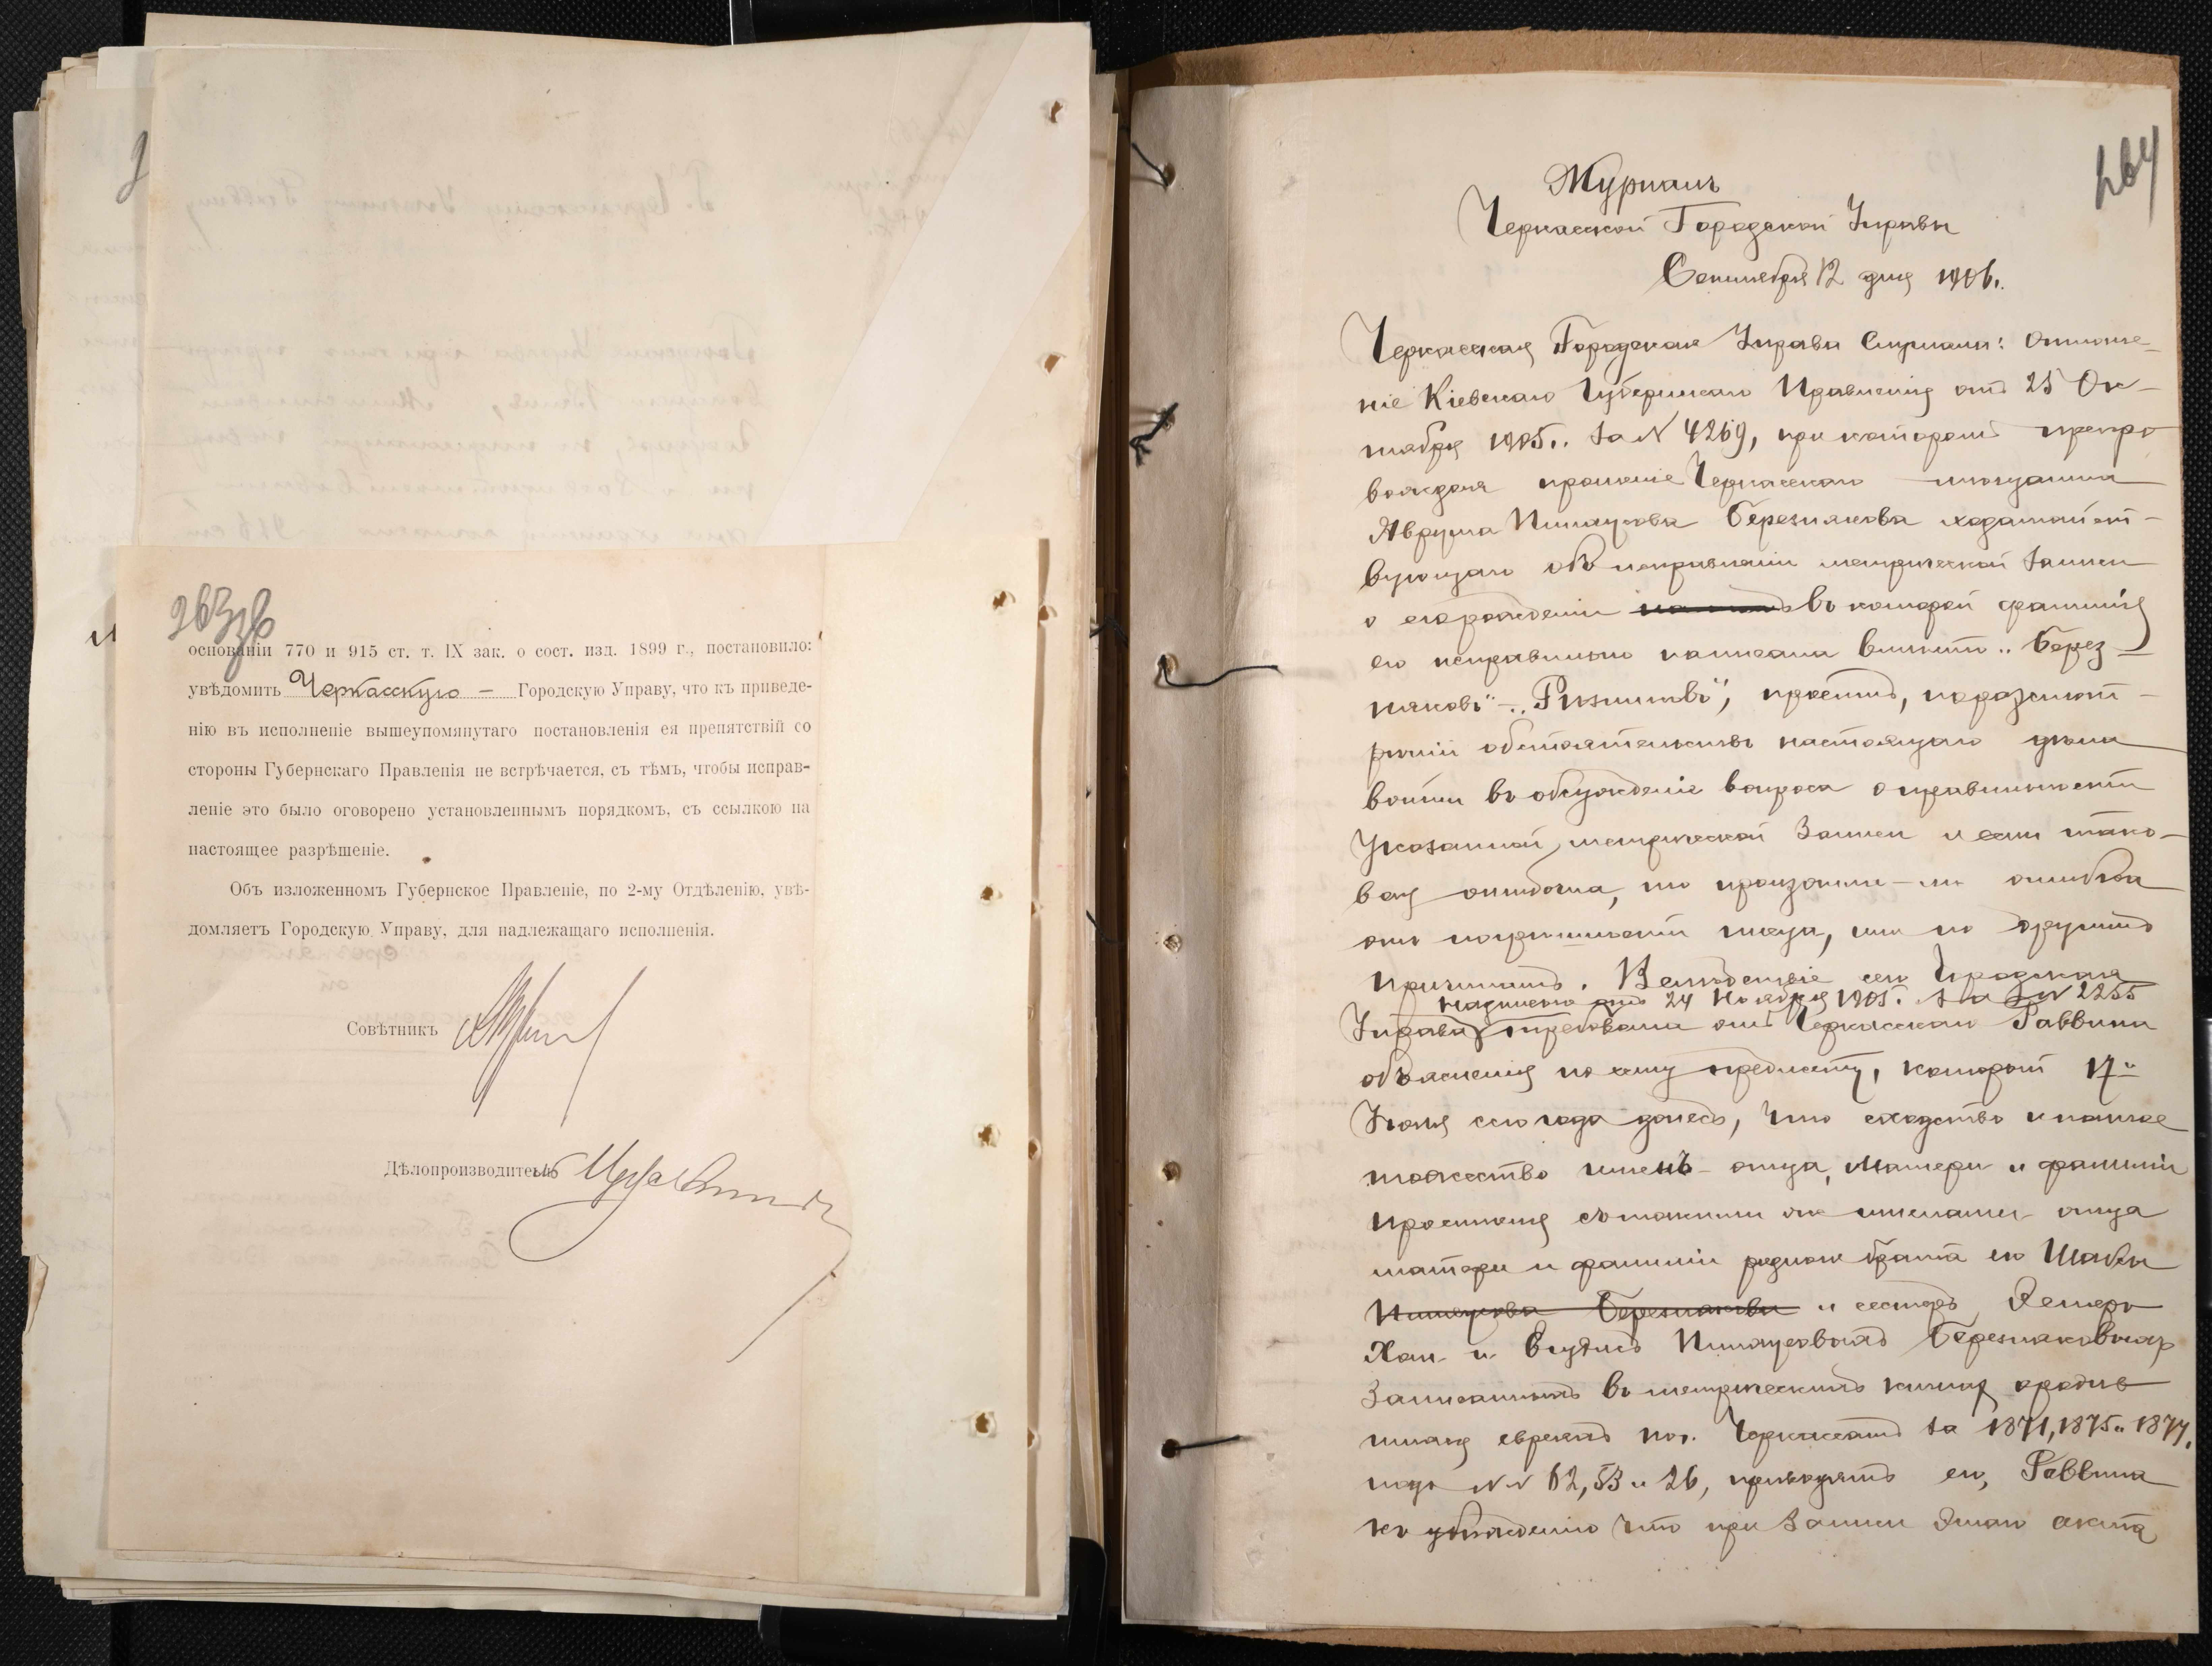 263 об
основаніи 770 и 915 ст. т. IX зак. о сост. изд. 1899 г., постановило:
увѣдомить Черкасскую — Городскую Управу, что къ приведе-
нію въ исполненіе вышеупомянутаго постановленія ея препятствій со
стороны Губернскаго Правленія не встрѣчается, съ тѣмъ, чтобы исправ-
леніе это было оговорено установленнымъ порядкомъ, съ ссылкою на
настоящее разрѣшеніе.
Объ изложенномъ Губернское Правленіе, по 2-му Отдѣленію, увѣ-
домляетъ Городскую Управу, для надлежащаго исполненія.
Совѣтникъ
Дѣлопроизводитель
264
Журналъ
Черкасской Городской Управы
Сентября 12 дня 1906 г.
Черкасская Городская Управа слушали: Отноше-
ніе Кіевскаго Губернскаго Правленія отъ 25 Ок-
тября 1905 г. за N 4269, при которомъ препро
вождая прошеніе Черкасскаго мѣщанина
Аврума Пинхусова Березнякова ходатайст-
вующаго объ исправленіи метрической записи
о его рожденіи въ которой фамилія
его неправильно написана вмѣсто „Берез-
няковъ" - „Ризниковъ", проситъ, по разсмот-
рѣніи обстоятельствъ настоящаго дѣла
войти въ обсужденіе вопроса о правильности
указанной метрической записи и если тако-
вая ошибочна, то произошла-ли ошибка
отъ погрѣшности писца, или по другимъ
причинамъ. Вслѣдствіе сего Городская
надписью отъ 24 Ноября 1905 г. за N 2255
Управа требовала отъ Черкасскаго Раввина
объясненія по сему предмету, который 17"
Іюля сего года донесъ, что сходство и полное
тожество именъ отца, матери и фамиліи
просителя съ такими же именами отца
матери и фамиліи родного брата его Шабы
Пинхусова Березнякова и сестеръ Эстеръ
Хаи и Пинхусовыхъ Березняковыхъ
записанныхъ въ метрическихъ книгахъ о родив
шихся евреяхъ по г. Черкассамъ за 1871, 1875 и 1877 г.
подъ NN 62, 53 и 26, приводятъ его, Раввина
къ убѣжденію что при записи этого акта